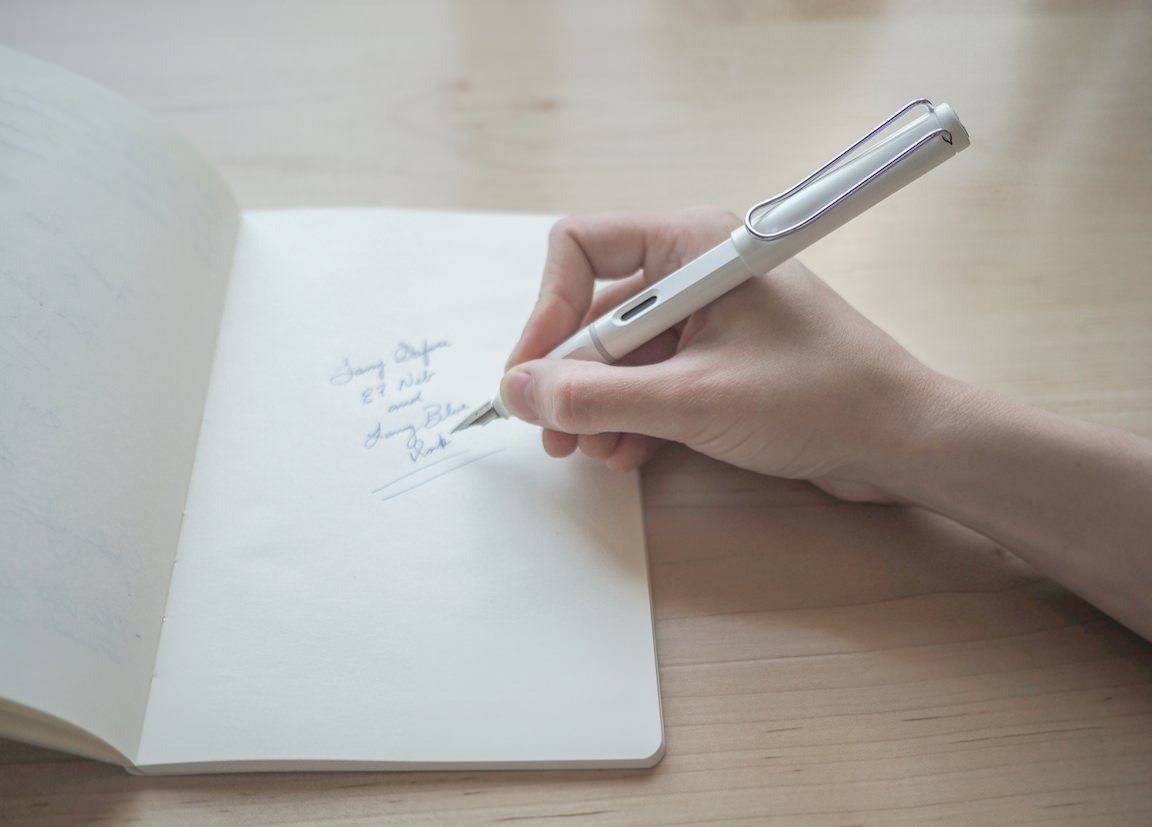 Lamy Safari
EF Nib
and
Lamy Blue
Ink